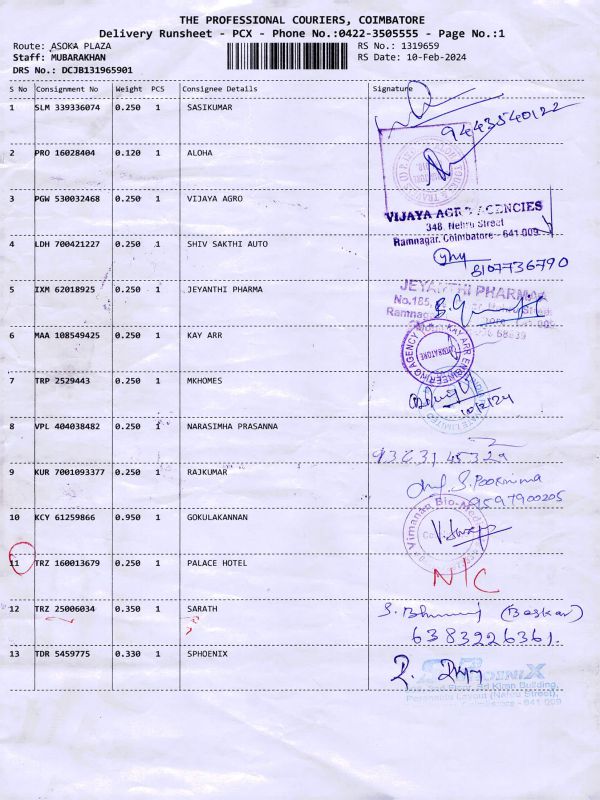 THE PROFESSIONAL COURIERS, COIMBATORE
Delivery Runsheet - PCX - Phone No.:0422-3505555 - Page No.:1
Route: ASOKA PLAZA RS No.: 1319659
Staff: MUBARAKHAN RS Date: 10-Feb-2024
DRS No.: DCJB131965901
S No Consignment No Weight PCS Consignee Details Signature
1 SLM 339336074 0.250 1 SASIKUMAR
9443540122
2 PRO 16028404 0.120 1 ALOHA
3 PGW 530032468 0.250 1 VIJAYA AGRO
VIJAYA AGRO AGENCIES
348, Nehru Street
Ramnagar, Coimbatore - 641 009
4 LDH 700421227 0.250 1 SHIV SAKTHI AUTO
8107736790
5 IXM 62018925 0.250 1 JEYANTHI PHARMA
JEYANTHI PHARMA
No.185, Nehru Street
Ramnagar
6 MAA 108549425 0.250 1 KAY ARR
KAY ARR ENGINEERING AGENCY
7 TRP 2529443 0.250 1 MKHOMES
10/2/24
8 VPL 404038482 0.250 1 NARASIMHA PRASANNA
9 KUR 7001093377 0.250 1 RAJKUMAR
S. Poornima
9597900205
10 KCY 61259866 0.950 1 GOKULAKANNAN
Vimanan Bio-Medi
11 TRZ 160013679 0.250 1 PALACE HOTEL
N/C
12 TRZ 25006034 0.350 1 SARATH
(Baskar)
6383226361.
13 TDR 5459775 0.330 1 SPHOENIX
Coimbatore - 641 009